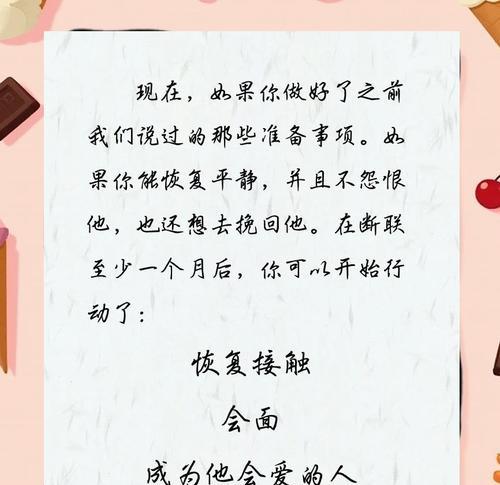 现在，如果你做好了之前
我们说过的那些准备事项。如
果你能恢复平静，并且不怨恨
他，也还想去挽回他。在断联
至少一个月后，你可以开始行
动了：
恢复接触
会面
成为他会爱的人